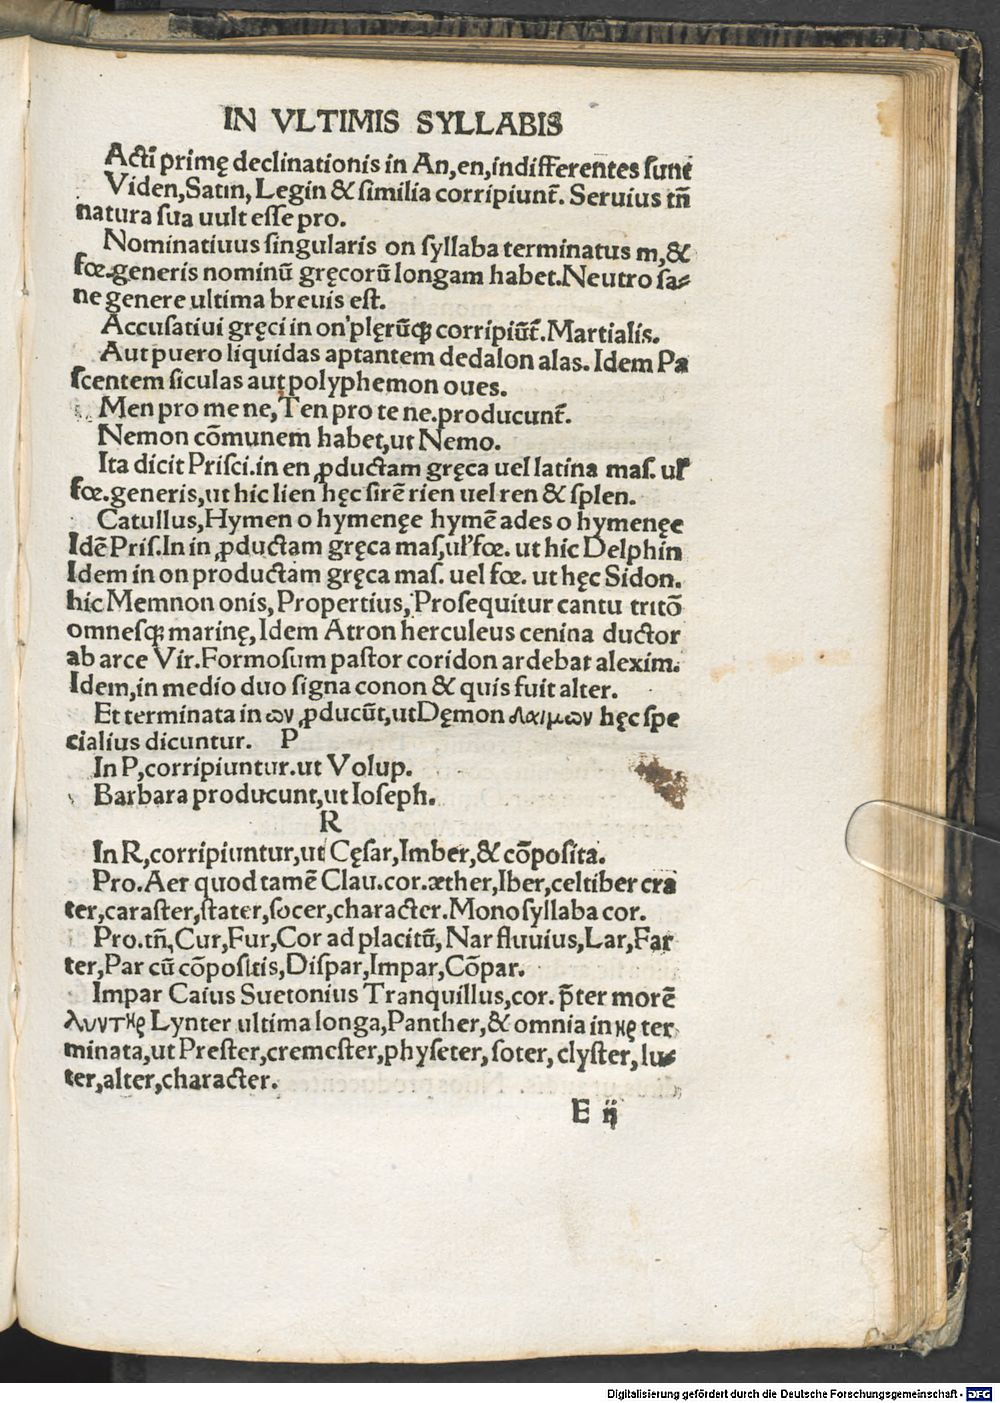 IN VLTIMIS SYLLABIS
Acti primę declinationis in An,en,indifferentes ſunt
Viden,Satin,Legin & ſimilia corripiunt̃. Seruius tñ
natura ſua uult eſſe pro.
Nominatiuus ſingularis on ſyllaba terminatus m,&
fœ.generis nominũ gręcorũ longam habet.Neutro ſa⸗
ne genere ultima breuis eſt.
Accuſatiui gręci in on plęrũꝗ corripiũt̃.Martialis.
Aut puero liquidas aptantem dedalon alas. Idem Pa
ſcentem ſiculas aut polyphemon oues.
Men pro me ne,Ten pro te ne.producunt̃.
Nemon cõmunem habet,ut Nemo.
Ita dicit Priſci.in en ꝓductam gręca uel latina maſ. ul̉
fœ.generis,ut hic lien hęc ſirẽ rien uel ren & ſplen.
Catullus,Hymen o hymenęe hymẽ ades o hymenęe
Idẽ Priſ.In in ꝓductam gręca maſ,ul̉ fœ. ut hic Delphin
Idem in on productam gręca maſ. uel fœ. ut hęc Sidon.
hic Memnon onis, Propertius, Proſequitur cantu tritõ
omneſꝗ marinę, Idem Atron herculeus cenina ductor
ab arce Vir.Formoſum paſtor coridon ardebat alexim.
Idem,in medio duo ſigna conon & quis fuit alter.
Et terminata in ων ꝓducũt,ut Dęmon δαιμων hęc ſpe
cialius dicuntur. P
In P,corripiuntur.ut Volup.
Barbara producunt,ut Ioſeph.
R
In R,corripiuntur,ut Cęſar,Imber,& cõpoſita.
Pro.Aer quod tamẽ Clau.cor.æther,Iber,celtiber cra
ter,caraſter,ſtater,ſocer,character.Monoſyllaba cor.
Pro.tñ,Cur,Fur,Cor ad placitũ, Nar fluuius,Lar,Far
ter,Par cũ cõpoſitis,Diſpar,Impar,Cõpar.
Impar Caius Suetonius Tranquillus,cor. p̃ter morẽ
λυντηρ Lynter ultima longa,Panther,& omnia in ηρ ter
minata,ut Preſter,cremeſter,phyſeter, ſoter, clyſter, lu⸗
ter,alter,character.
E ii
Digitalisierung gefördert durch die Deutsche Forschungsgemeinschaft - DFG